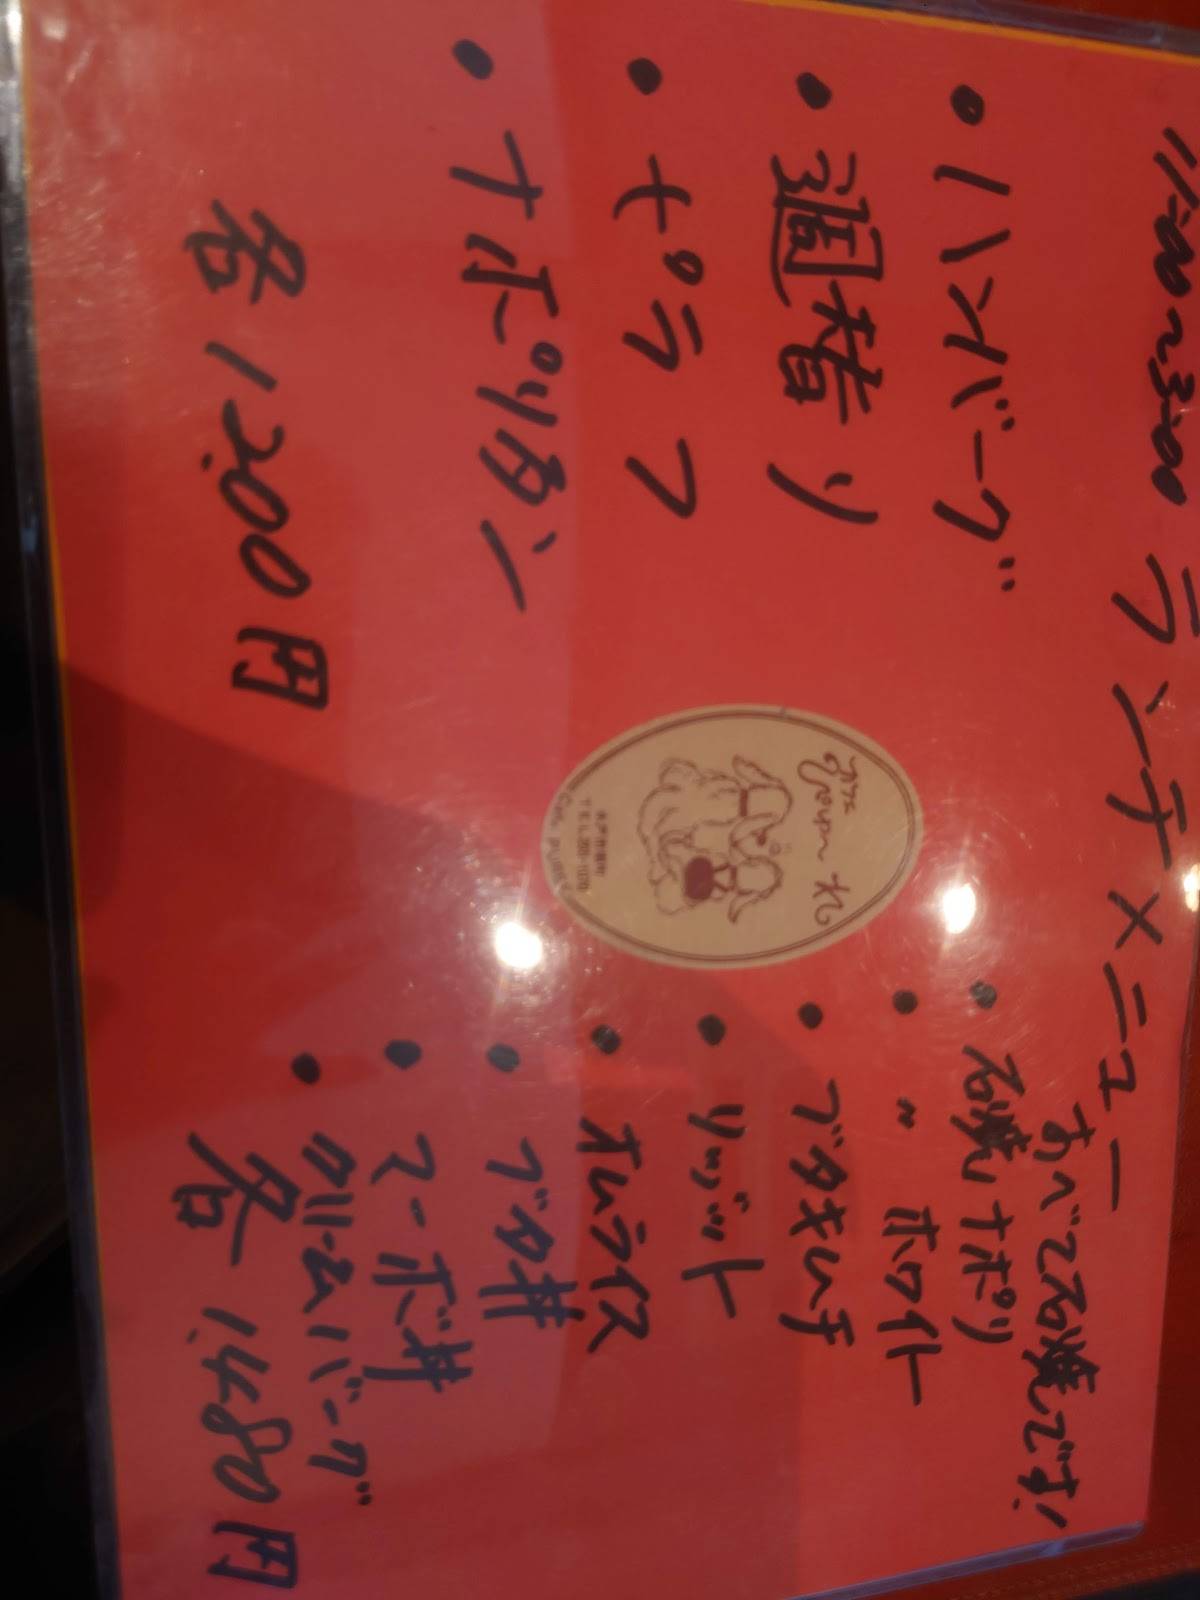 11:00~3:00 ランチメニュー
・ハンバーグ
・週替り
・ピラフ
・ナポリタン
各1,200円
すべて石焼です!
・石焼ナポリ
・〃 ホワイト
・ブタキムチ
・リゾット
・オムライス
・ブタ丼
・マーボ丼
・クリームハンバーグ
各1,480円